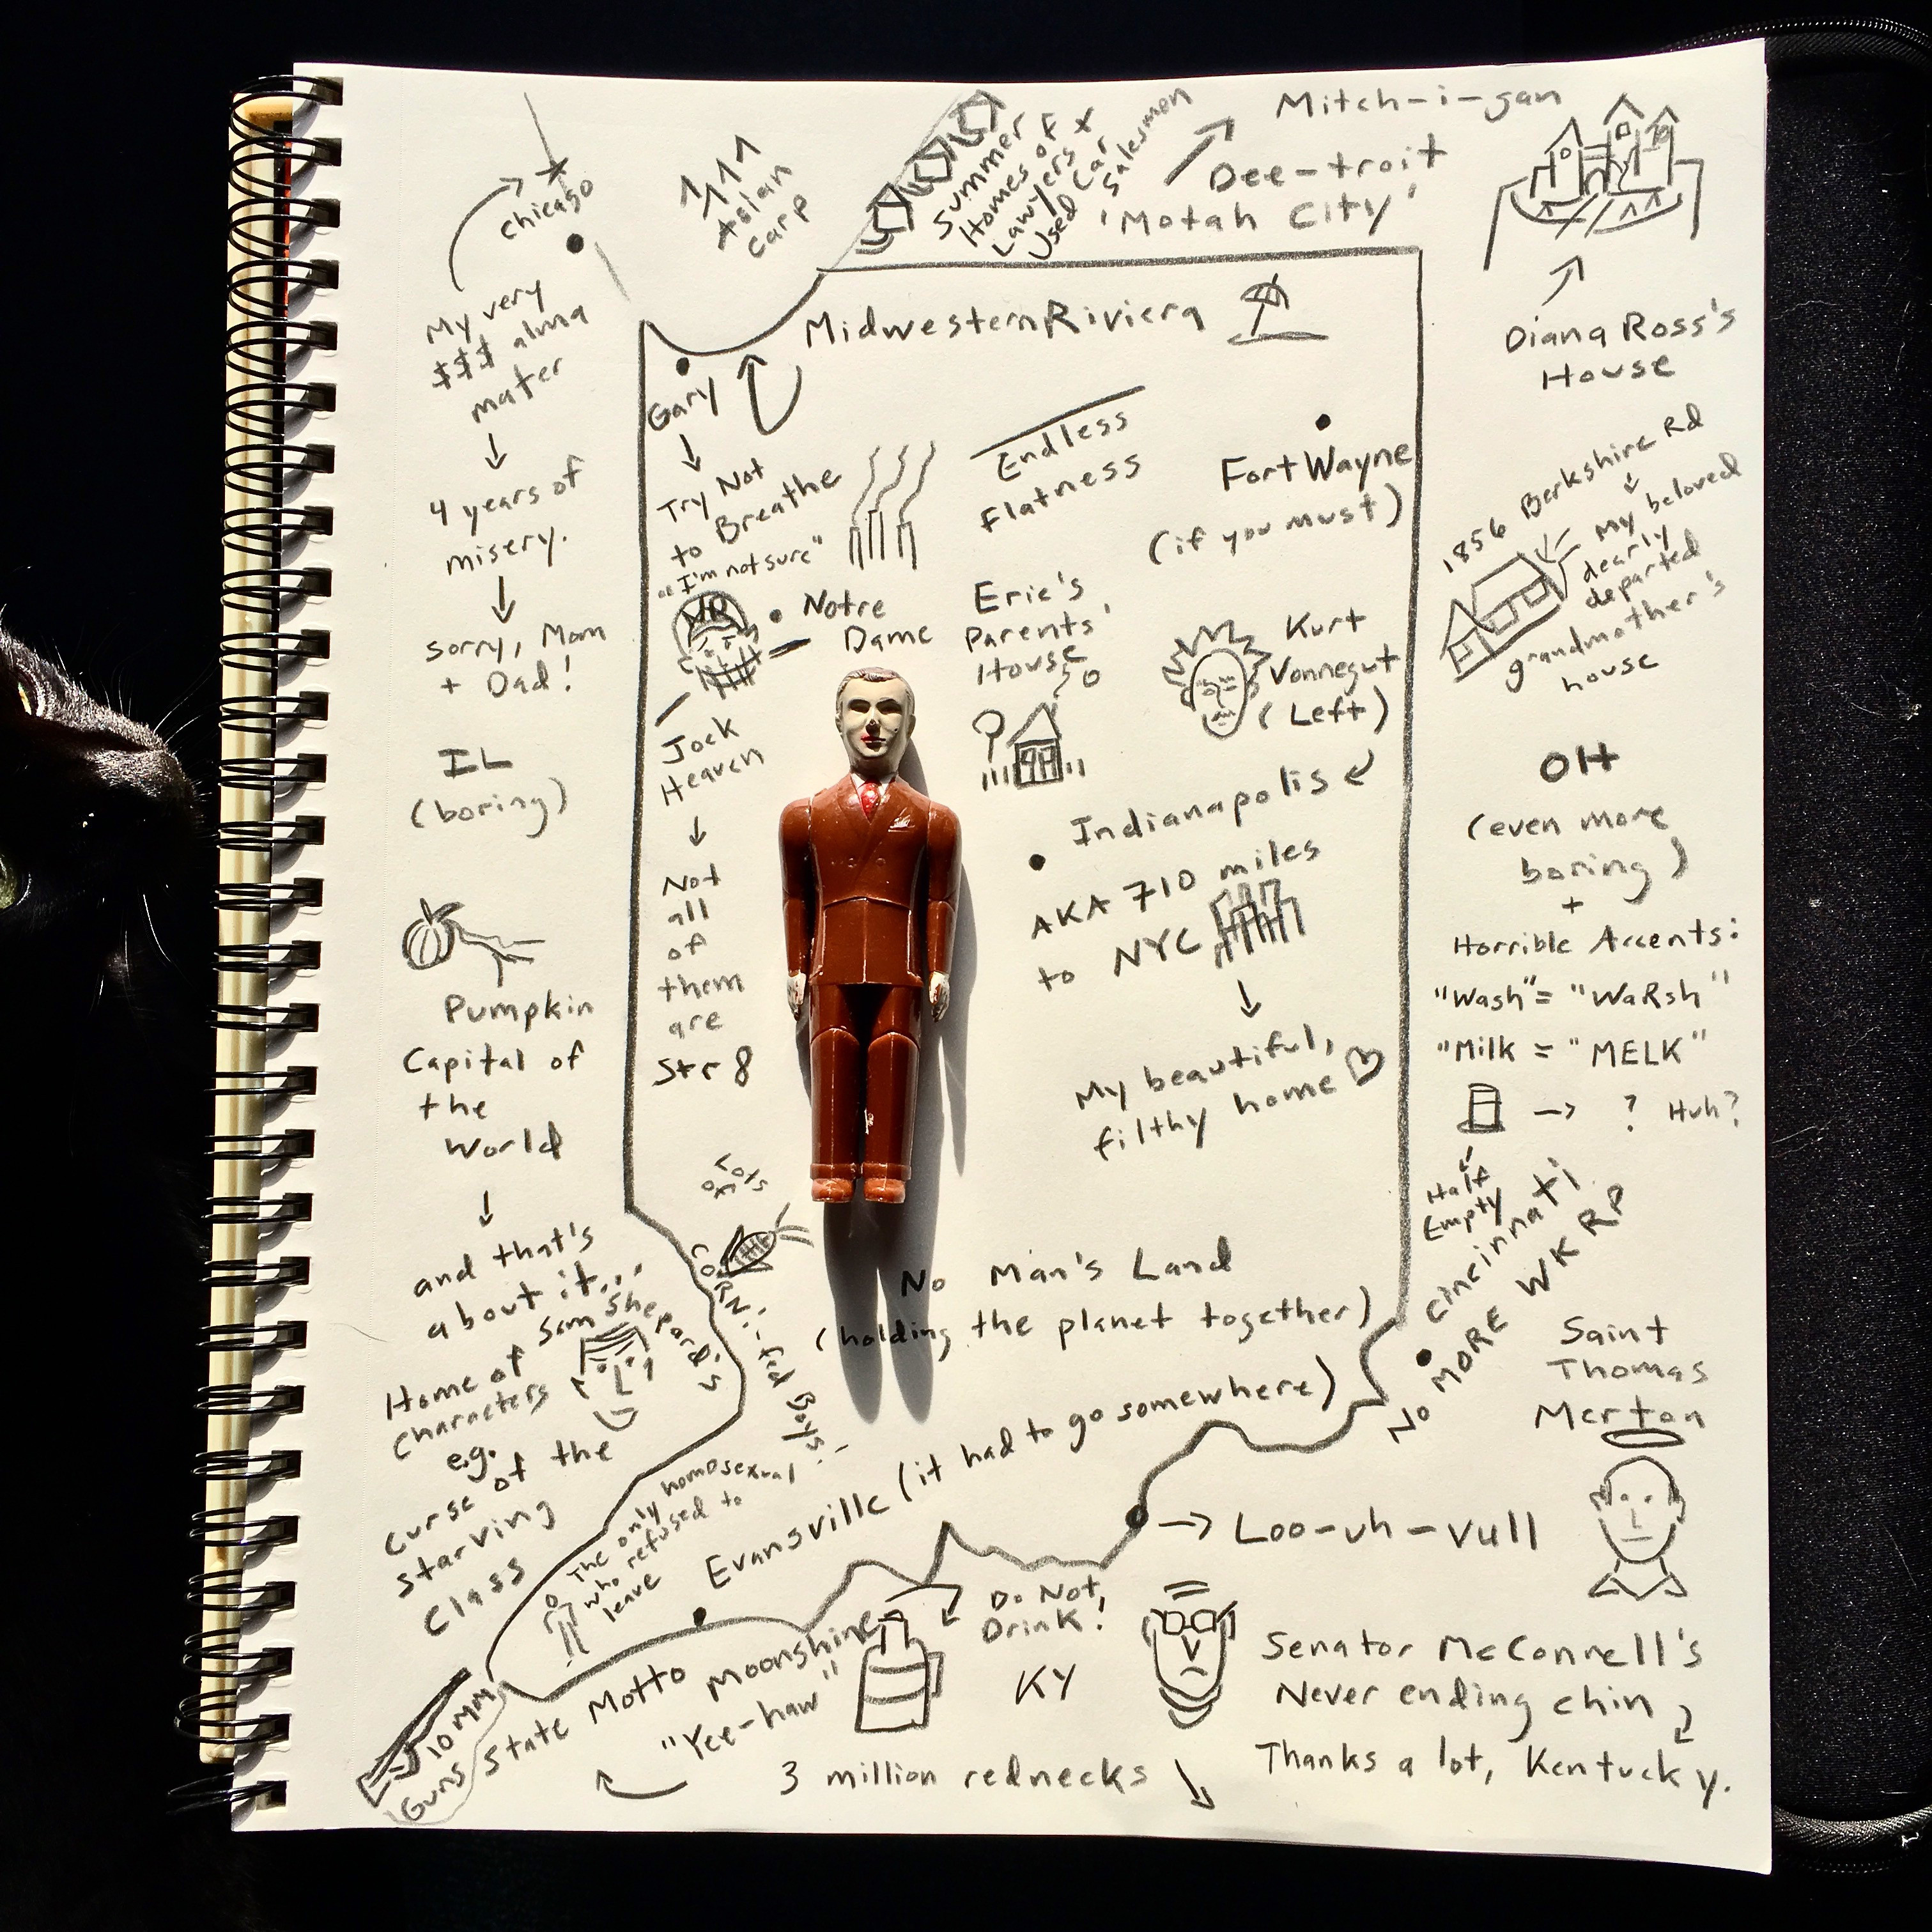 Chicago
My very
$$$ alma
mater
4 years of
misery.
Sorry, Mom
+ Dad!
IL
(boring)
Pumpkin
Capital of
the
World
and that's
about it...
Home of Sam Shepard's
Characters
e.g.
Curse of the
Starving
Class
Asian
Carp
Summer
Homes of
Lawyers +
Used Car
Salesmen
Mitch-i-gan
Dee-troit
'Motah City'
Diana Ross's
House
Midwestern Riviera
Gary
Try Not
to Breathe
"I'm not sure"
Notre
Dame
Jock
Heaven
Not
all
of
them
are
Str8
Endless
Flatness
Fort Wayne
(if you must)
Eric's
Parents'
House
Kurt
Vonnegut
(Left)
Indianapolis
AKA 710 miles
to NYC
My beautiful,
filthy home
Lots
of
CORN!-fed Boys!
No Man's Land
(holding the planet together)
Evansville (it had to go somewhere)
The only homosexual
who refused to
leave
1856 Berkshire Rd
My beloved
dearly
departed
grandmother's
house
OH
(even more
boring)
+
Horrible Accents:
"Wash" = "WaRsh"
"Milk = "MELK"
? Huh?
Half
Empty
Cincinnati
No MORE WKRP
Saint
Thomas
Merton
Loo-uh-vull
10 MM
Guns
State Motto
"Yee-haw"
Moonshine
Do Not
Drink!
KY
3 million rednecks
Senator McConnell's
Never ending chin
Thanks a lot, Kentucky.